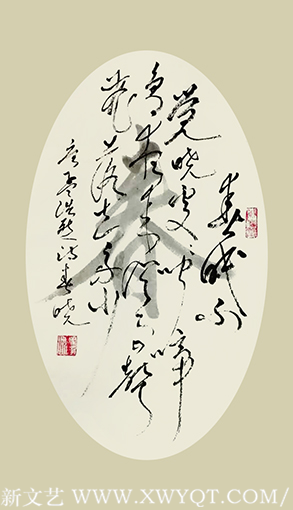 春眠不
觉晓处处闻啼
鸟夜来风雨声
花落知多少
唐孟浩然诗春晓
春
新文艺 WWW.XWYQT.COM/